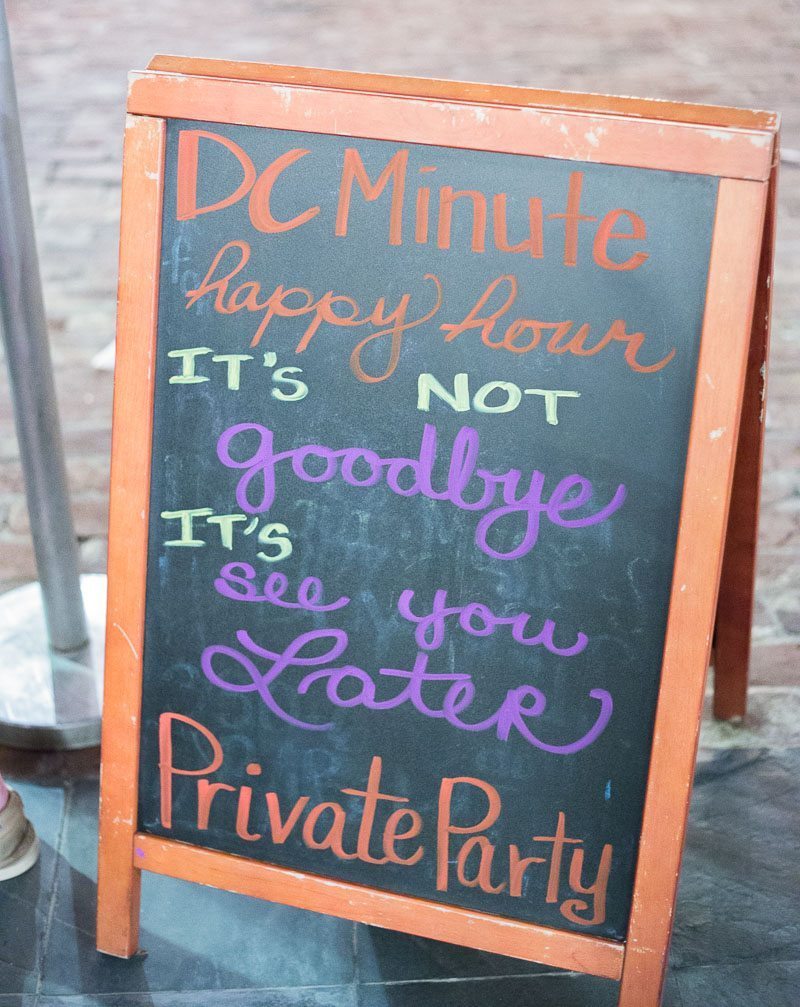 DC Minute
happy hour
IT'S NOT
goodbye
IT'S
see you
Later
Private Party